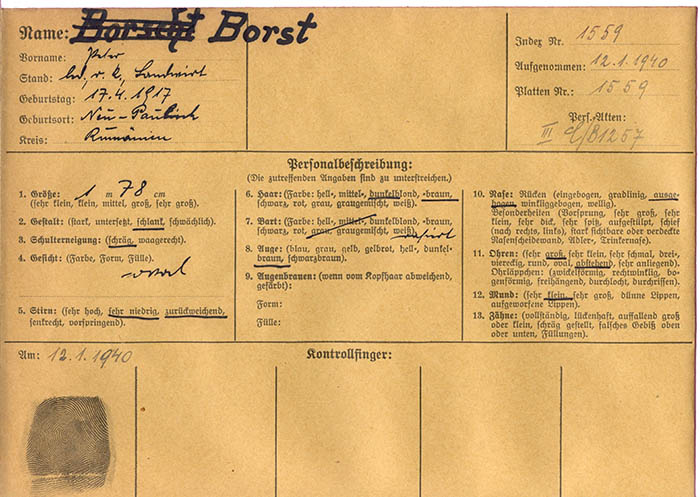 Name: Borscht Borst
Vorname: Peter
Stand: led, r. k., Landwirt
Geburtstag: 17.4.1917
Geburtsort: Neu-
Kreis: Rumänien
Index Nr. 1559
Aufgenommen: 12.1.1940
Platten Nr.: 1559
Pers.-Akten:
III B1257
Personalbeschreibung:
(Die zutreffenden Angaben sind zu unterstreichen.)
1. Größe: 1 m 78 cm
(sehr klein, klein, mittel, groß, sehr groß).
2. Gestalt: (stark, untersetzt, schlank, schwächlich).
3. Schulterneigung: (schräg, waagerecht).
4. Gesicht: (Farbe, Form, Fülle).
oval
5. Stirn: (sehr hoch, sehr niedrig, zurückweichend,
senkrecht, vorspringend).
6. Haar: (Farbe: hell-, mittel-, dunkelblond, -braun,
schwarz, rot, grau, graugemischt, weiß).
7. Bart: (Farbe: hell-, mittel-, dunkelblond, -braun,
schwarz, rot, grau, graugemischt, weiß).
rasirt
8. Auge: (blau, grau, gelb, gelbrot, hell-, dunkel-
braun, schwarzbraun).
9. Augenbrauen: (wenn vom Kopfhaar abweichend,
gefärbt):
Form:
Fülle:
10. Nase: Rücken (eingebogen, gradlinig, ausge-
bogen, winkliggebogen, wellig).
Besonderheiten (Vorsprung, sehr groß, sehr
klein, sehr dick, sehr spitz, aufgestülpt, schief
(nach rechts, links), stark sichtbare oder verdeckte
Nasenscheidewand, Adler-, Trinkernase).
11. Ohren: (sehr groß, sehr klein, sehr schmal, drei-
viereckig, rund, oval, abstehend, sehr anliegend).
Ohrläppchen: (zwickelförmig, rechtwinklig, bo-
genförmig, freihängend, durchlocht, durchrissen).
12. Mund: (sehr klein, sehr groß, dünne Lippen,
aufgeworfene Lippen).
13. Zähne: (vollständig, lückenhaft, auffallend groß
oder klein, schräg gestellt, falsches Gebiß oben
oder unten, Füllungen).
Am: 12.1.1940
Kontrollfinger: